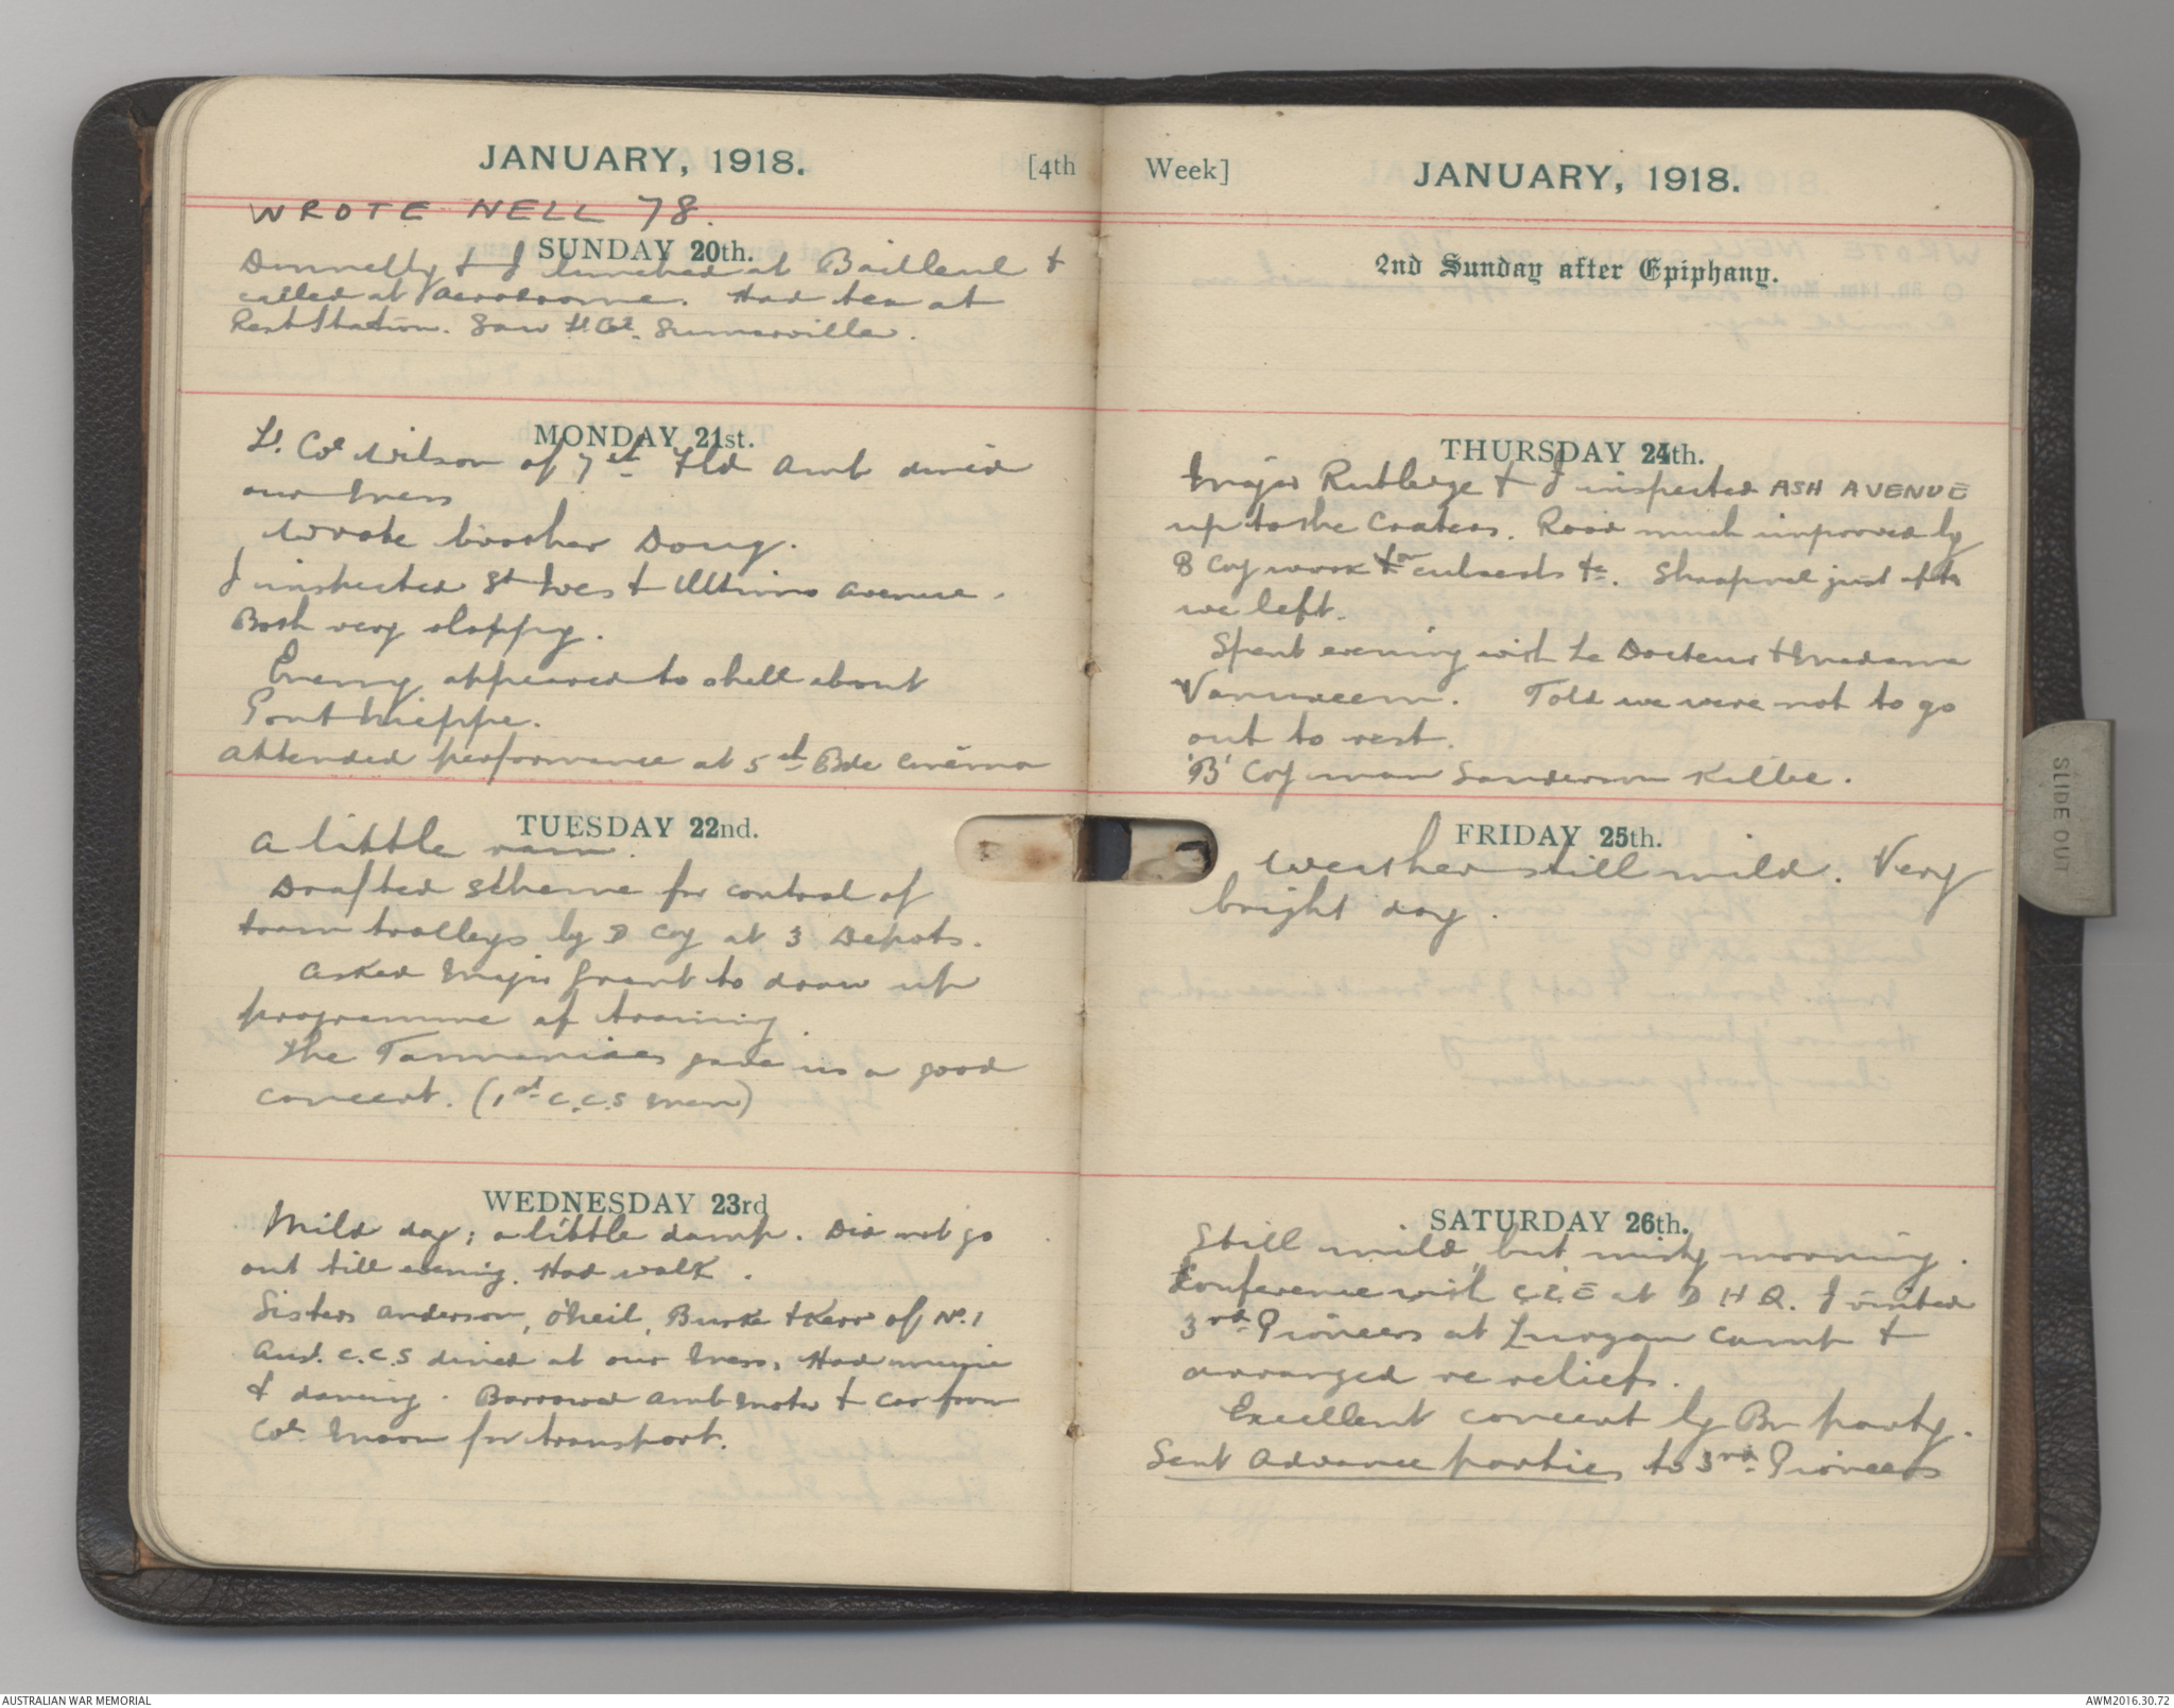 JANUARY, 1918. [4th
WROTE NELL 78.
SUNDAY 20th.
Donnelly & I lunched at Bailleul &
called at Aerodrome. Had tea at
Rest Station. Saw Lt. Col. Summerville.
MONDAY 21st.
Lt. Col Wilson of 7th Fld Amb dined
our mess
Wrote brother Doug.
I inspected St Ives & Ultimo Avenue.
Both very sloppy.
Enemy appeared to shell about
Pont Nieppe.
Attended performance at 5th Bde Cinema
TUESDAY 22nd.
A little rain.
Drafted scheme for control of
tram trolleys by D Coy at 3 Depots.
Asked Major Grant to draw up
programme of training
The Tasmaniacs gave us a good
concert. (1st C.C.S men)
WEDNESDAY 23rd
Mild day; a little damp. Did not go
out till evening. Had walk.
Sisters Anderson, O'Neil, Burke & Kerr of No. 1
Aus. C.C.S dined at our mess. Had music
& dancing. Borrowed amb motor & car from
Col. Moon for transport.
Week] JANUARY, 1918.
2nd Sunday after Epiphany.
THURSDAY 24th.
Major Rutledge & I inspected ASH AVENUE
up to the Craters. Road much improved by
B Coy work on culverts &c. Shrapnel just after
we left.
Spent evening with Le Docteur & Madame
Told we were not to go
out to rest.
'B' Coy man Sanderson killed.
FRIDAY 25th.
Weather still mild. Very
bright day.
SATURDAY 26th.
Still mild, but misty morning.
Conference with C.R.E at D H Q. I visited
3rd Pioneers at Lurgan Camp &
arranged re relief.
Excellent concert by Bn party.
Sent Advance parties to 3rd Pioneers
SLIDE OUT
AUSTRALIAN WAR MEMORIAL
AWM2016.30.72